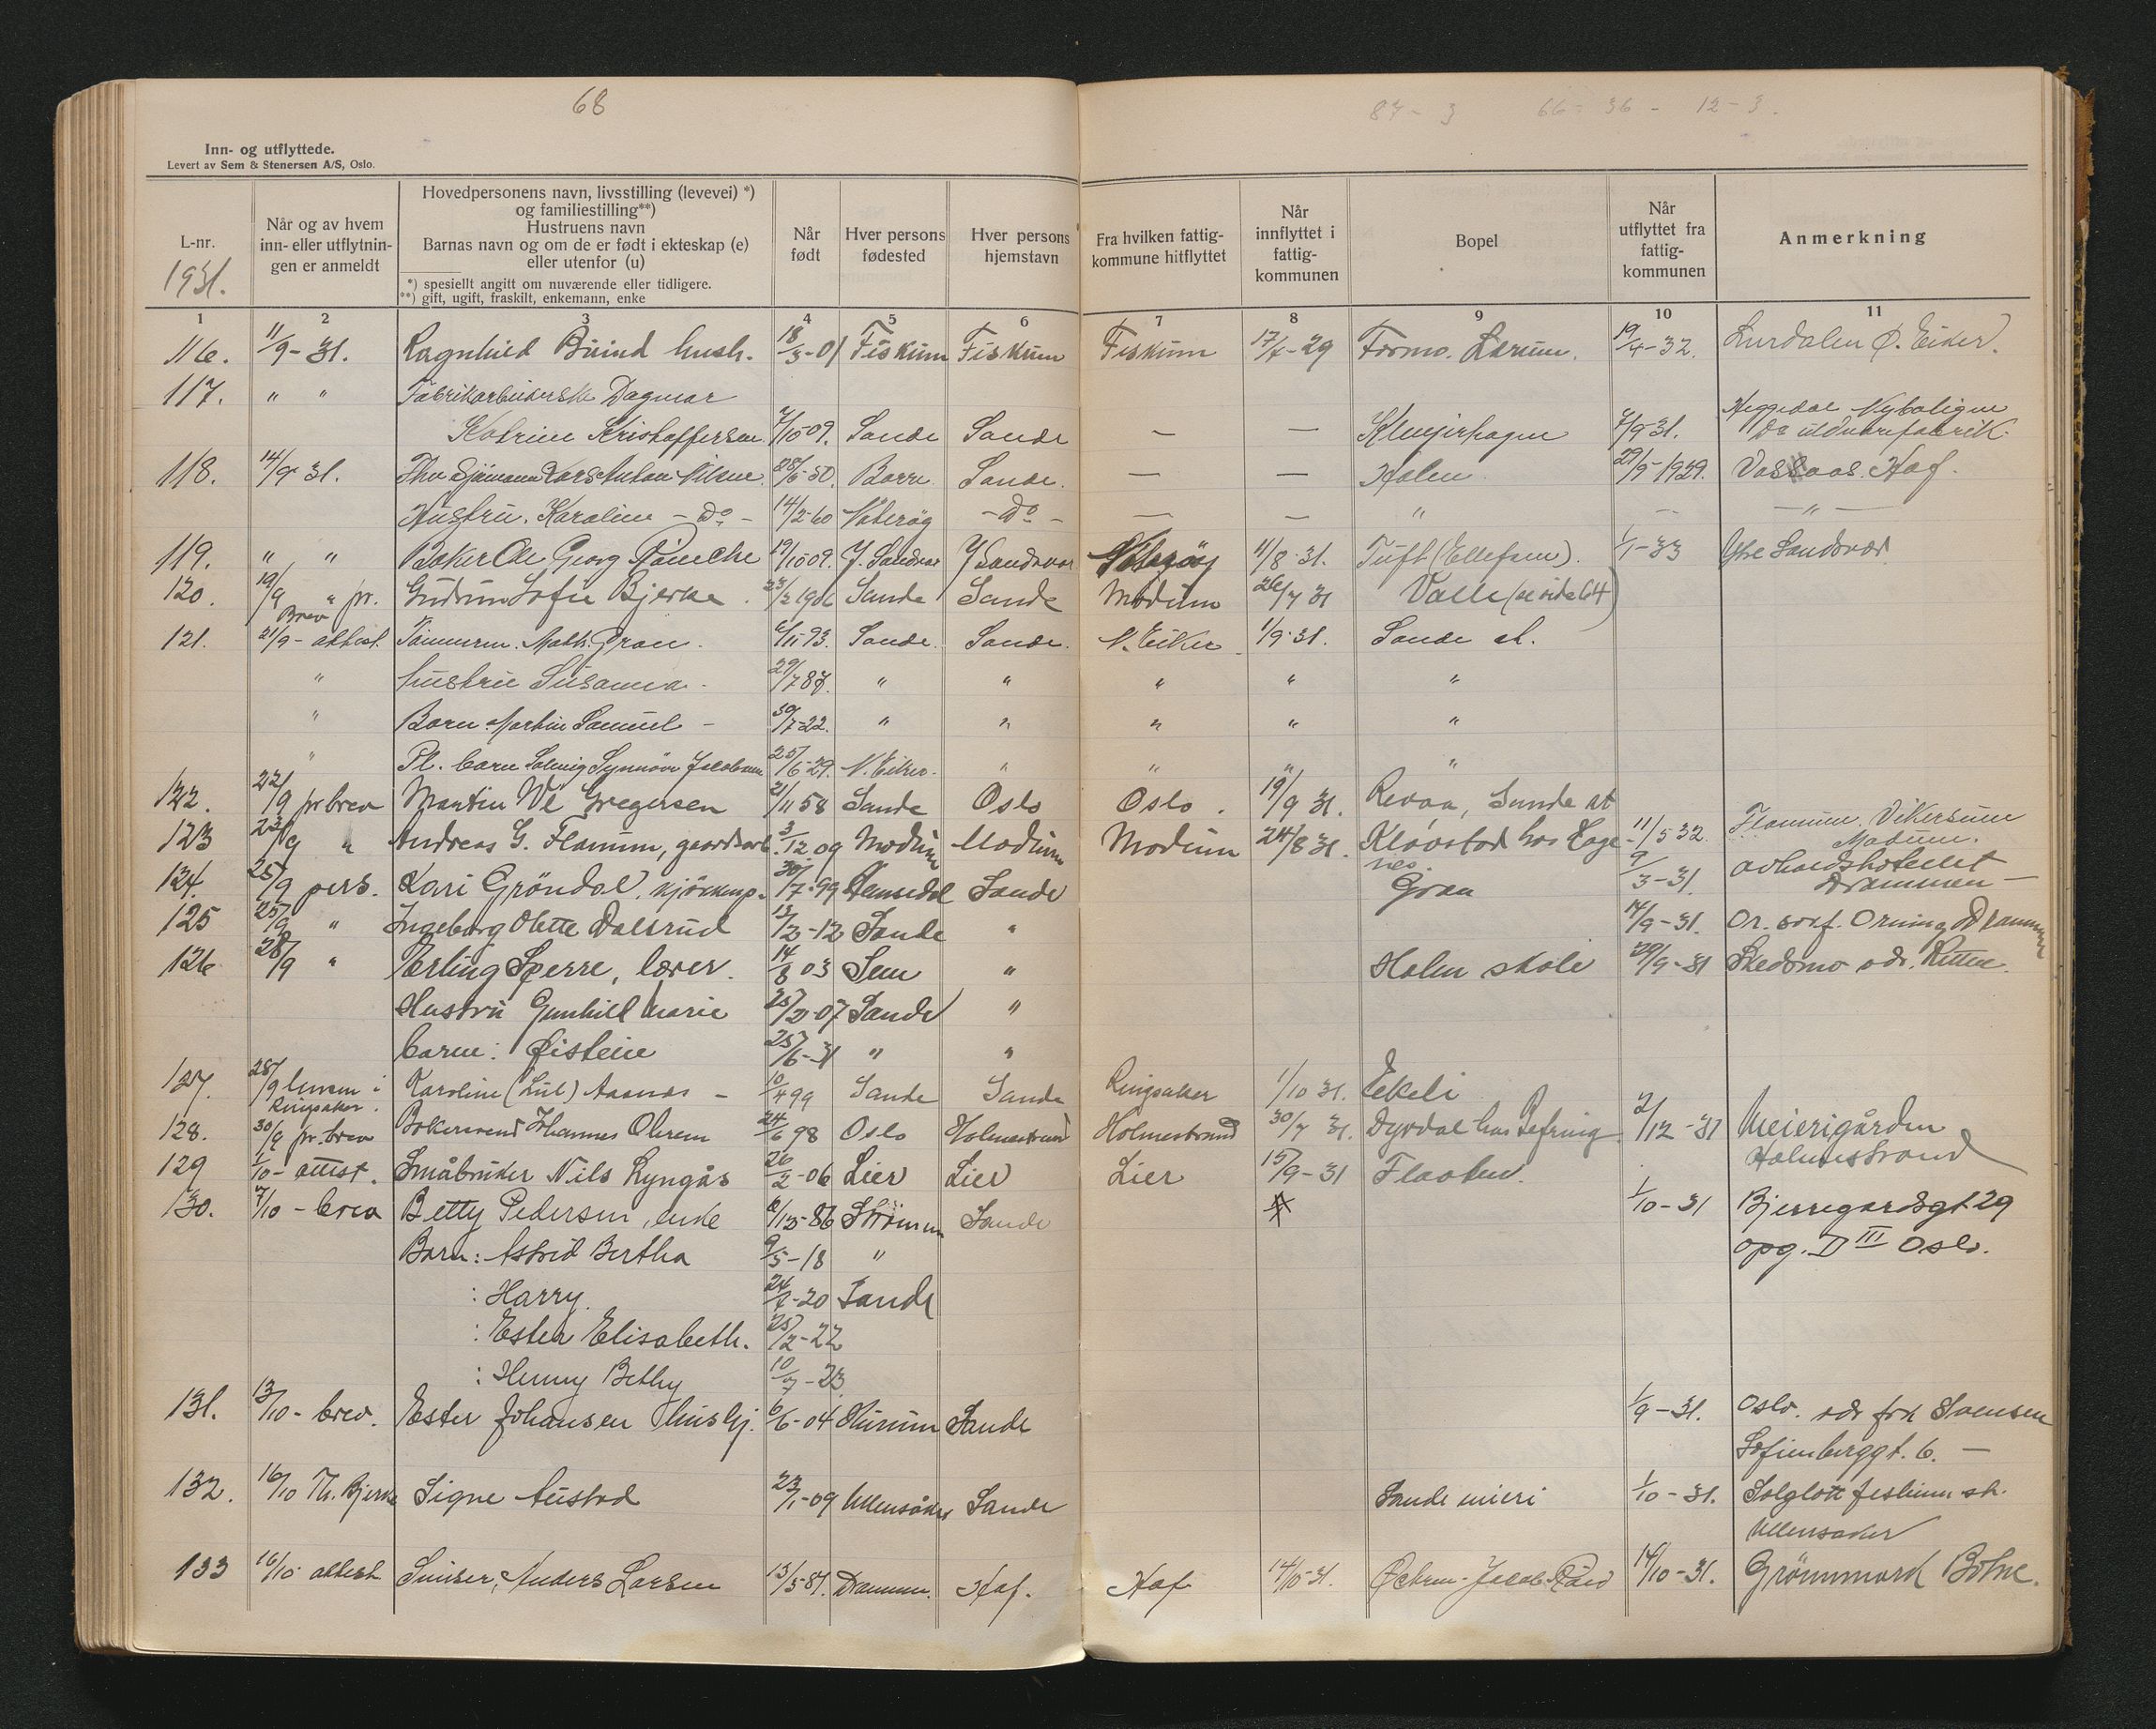 68
87 - 3 66 - 36 - 12 - 3.
Inn- og utflyttede.
Levert av Sem & Stenersen A/S, Oslo.
L-nr.
1931.
Når og av hvem
inn- eller utflytnin-
gen er anmeldt
Hovedpersonens navn, livsstilling (levevei) *)
og familiestilling**)
Hustruens navn
Barnas navn og om de er født i ekteskap (e)
eller utenfor (u)
*) spesiellt angitt om nuværende eller tidligere.
**) gift, ugift, fraskilt, enkemann, enke
Når
født
Hver persons
fødested
Hver persons
hjemstavn
Fra hvilken fattig-
kommune hitflyttet
Når
innflyttet i
fattig-
kommunen
Bopel
Når
utflyttet fra
fattig-
kommunen
Anmerkning
1 2 3 4 5 6 7 8 9 10 11
116. 11/9-31. Ragnhild Buind hush. 18/3-01 Fiskum Fiskum Fiskum 17/7-29 Formo. Lerum. 19/4-32. Ø. Eiker.
117. " " Fabrikarbeiderske Dagmar
Katrine Kristoffersen 7/10 09. Sande Sande — — 7/9-31. Heggedal Nyboligen
Do uldvarefabrik.
118. 14/9-31. Fhv Sjömann Lars Anton Nilsen. 28/6-50. Borre Sande. — — Holen 29/9-1929. Vassaas. Hof.
Hustru. Karoline - Do - 14/2-60 Nøterøy - Do - — — " — — " —
119. " " Baker Ole Georg 19/10 09. Y. Sandsvær Y Sandsvær Nøterøy 11/8-31. Tuft (Ellefsen). 1/1-33 Ytre Sandsvær
120. 19/9 " pr. Brev Gudrun Sofie Bjerke. 23/2 1906 Sande Sande Modum 26/7 31 Valle (se side 64)
121. 21/9 - attest. Tömmerm. Math. Gran. 6/11 93. Sande. Sande. N. Eiker 1/9-31. Sande st.
" hustru Susanna. 29/7 87. " " " " "
" Barn. Martin Samuel - 30/7-22. " " " " "
" Pl. barn Solveig Synnöve Jacobsen 25/6-29. N. Eiker. " " " "
122. 22/9 pr brev Martin Gregersen 21/11 58 Sande Oslo Oslo. 19/9 31. Revaa, Sande st
123 23/9 " Andreas G. Flannum, gaardsarb. 3/12 09 Modum Modum Modum 24/8 31. Klovstad hos Hage- 11/5 32 Flannum. Vikersund
nes Modum.
124. 25/9 pers. Kari Gröndal. 30/7-99 Hemsedal Sande Gran 9/3-31. arbeidshotellet
Drammen —
125 25/9 " Ingeborg Olette Dalsrud 13/2-12 Sande " 14/9-31. Drammen
126 28/9 " Erling Sperre, lærer. 14/8 03 Sem " Holm skole 29/9-31 Skedsmo adr.
Hustru Gunhild Marie 25/2-07 Sande "
barn: Øistein 25/6-31 " "
127. 28/9 lensm i Ringsaker. Karoline Aasnes - 10/4 99 Sande Sande Ringsaker 1/10 31. Eekeli
128. 30/9 pr. brev Bakersvend Johannes Olsen 24/6 98 Oslo Holmestrand Holmestrand 30/7 31. Dyrdal hos Refning 2/12-31 Meierigården
Holmestrand
129 1/10 - attest. Småbruker Nils Lyngås 26/2-06 Lier Lier Lier 15/9-31 Flaaten.
130. 7/10 - brev Betty Pedersen, enke 6/12-86 Strömm Sande 1/10-31 Bjerregardsgt 29
Barn: Astrid Bertha 9/5-18 " opg. D III Oslo.
: Harry. 24/7-20 Sande
: Ester Elisabeth. 25/2-22
: Henny Bethy 10/7-23
131. 13/10 - brev. Ester Johansen hushj. 6/6-04 Hurum Sande 1/9-31. Oslo. adr frk Svensen
Sofienberggt. 6. —
132. 16/10 Th. Bjerke Signe Austad 23/1-09 Ullensaker Sande Sande mieri 1/10-31. Solglott Jesheim st.
Ullensaker
133 16/10 attest Anders Larsen 13/5-87. Drammen. Hof. Hof 14/10-31. 14/10-31. Botne.